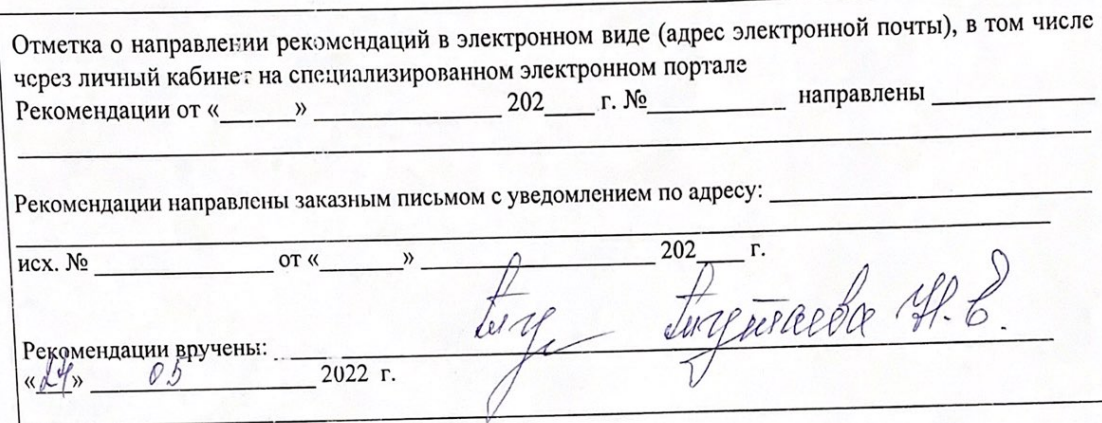 Отметка о направлении рекомендаций в электронном виде (адрес электронной почты), в том числе
через личный кабинет на специализированном электронном портале
Рекомендации от «______» ______________ 202____ г. №___________ направлены ____________
Рекомендации направлены заказным письмом с уведомлением по адресу: ________________________
исх. № ______________ от «_______» __________________ 202____ г.
Н.Е.
Рекомендации вручены: ___
«24» 05 2022 г.